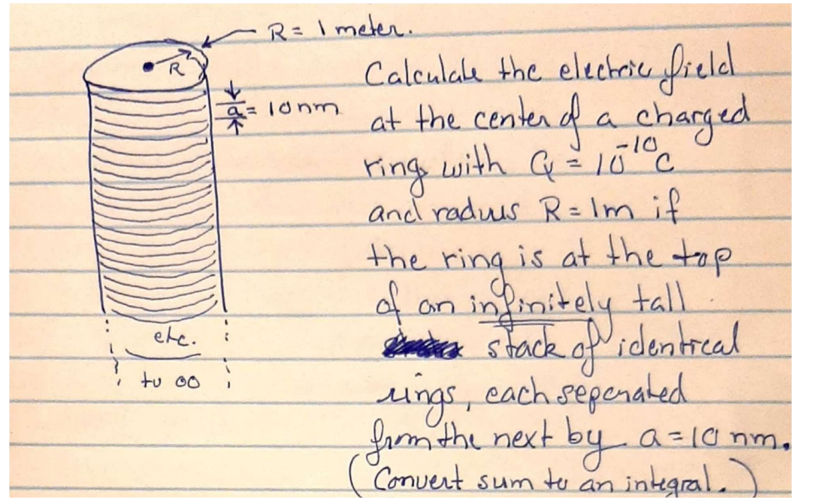 R = 1 meter.
R
a = 10nm
Calculate the electric field
at the center of a charged
ring with Q = 10⁻¹⁰C
and radius R = 1m if
the ring is at the top
of an infinitely tall
stack of identical
rings, each seperated
from the next by a = 10 nm.
(Convert sum to an integral.)
etc.
to ∞